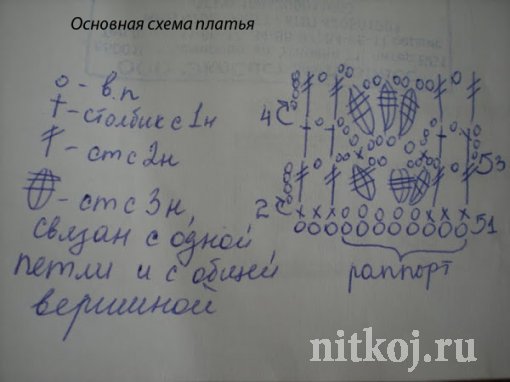 Основная схема платья
о - в.п
† - столбик с 1н
ст с 2н
- ст с 3н,
связан с одной
петли и с общей
вершиной
4
5з
2
51
раппорт
nitkoj.ru